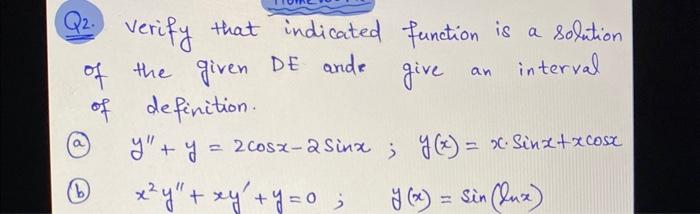 Q2. verify that indicated function is a solution
of the given DE ande give an interval
of definition.
(a) y'' + y = 2cosx - 2Sinx ; y(x) = x.Sinx + xcosx
(b) x²y'' + xy' + y = 0 ; y(x) = Sin(lnx)